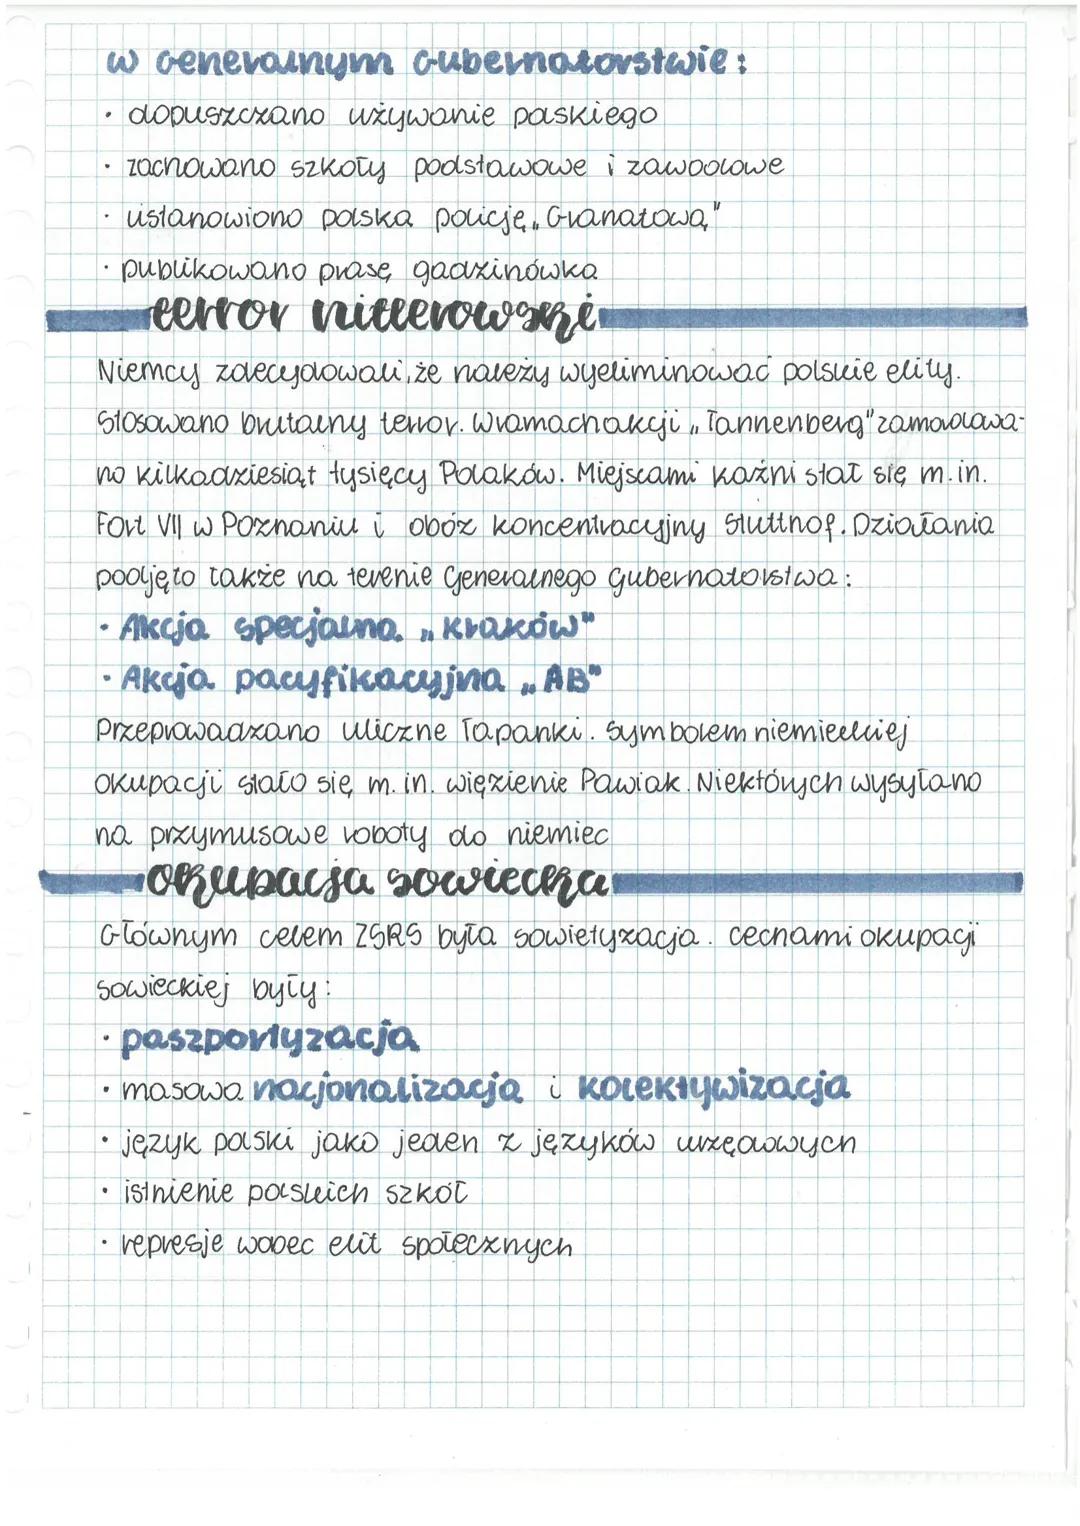 w Generalnym Gubernatorstwie:
· dopuszczano używanie polskiego
· zachowano szkoły podstawowe i zawodowe
· ustanowiono polska policję „Granatową"
· publikowano prasę gadzinówka
terror hitlerowski
Niemcy zdecydowali, że należy wyeliminować polskie elity.
Stosowano brutalny terror. W ramach akcji „Tannenberg" zamordowa-
no kilkadziesiąt tysięcy Polaków. Miejscami kaźni stał się m.in.
Fort VII w Poznaniu i obóz koncentracyjny Stuttnof. Działania
podjęto także na terenie Generalnego Gubernatorstwa:
· Akcja specjalna „Kraków"
· Akcja pacyfikacyjna „AB"
Przeprowadzano uliczne łapanki. Symbolem niemieckiej
okupacji stało się m. in. więzienie Pawiak. Niektórych wysyłano
na przymusowe roboty do niemiec
okupacja sowiecka
Głównym celem ZSRS była sowietyzacja. cechami okupacji
sowieckiej były:
· paszportyzacja
· masowa nacjonalizacja i kolektywizacja
· język polski jako jeden z języków urzędowych
· istnienie polskich szkół
· represje wobec elit społecznych